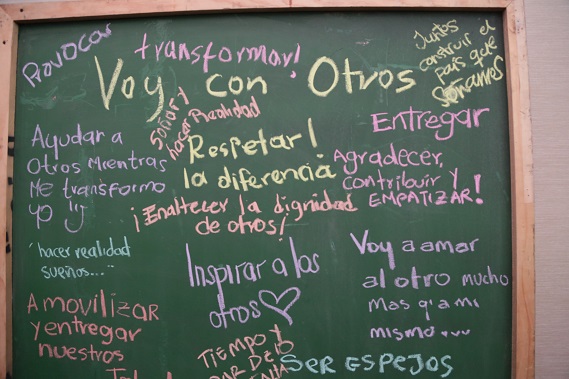 Provocar
transformar!
Juntos
construir el
país que
Soñamos
Voy con Otros
Soñar y
hacer Realidad
Entregar
Respetar!
la diferencia
Ayudar a
Otros Mientras
Me transformo
yo
Agradecer,
contribuir y
EMPATIZAR!
¡Enaltecer la dignidad
de otros!
"hacer realidad
sueños..."
Inspirar a los
otros
Voy a amar
al otro mucho
Mas q' a mi
mismo...
A movilizar
y entregar
nuestros
TIEMPO Y
SER ESPEJOS